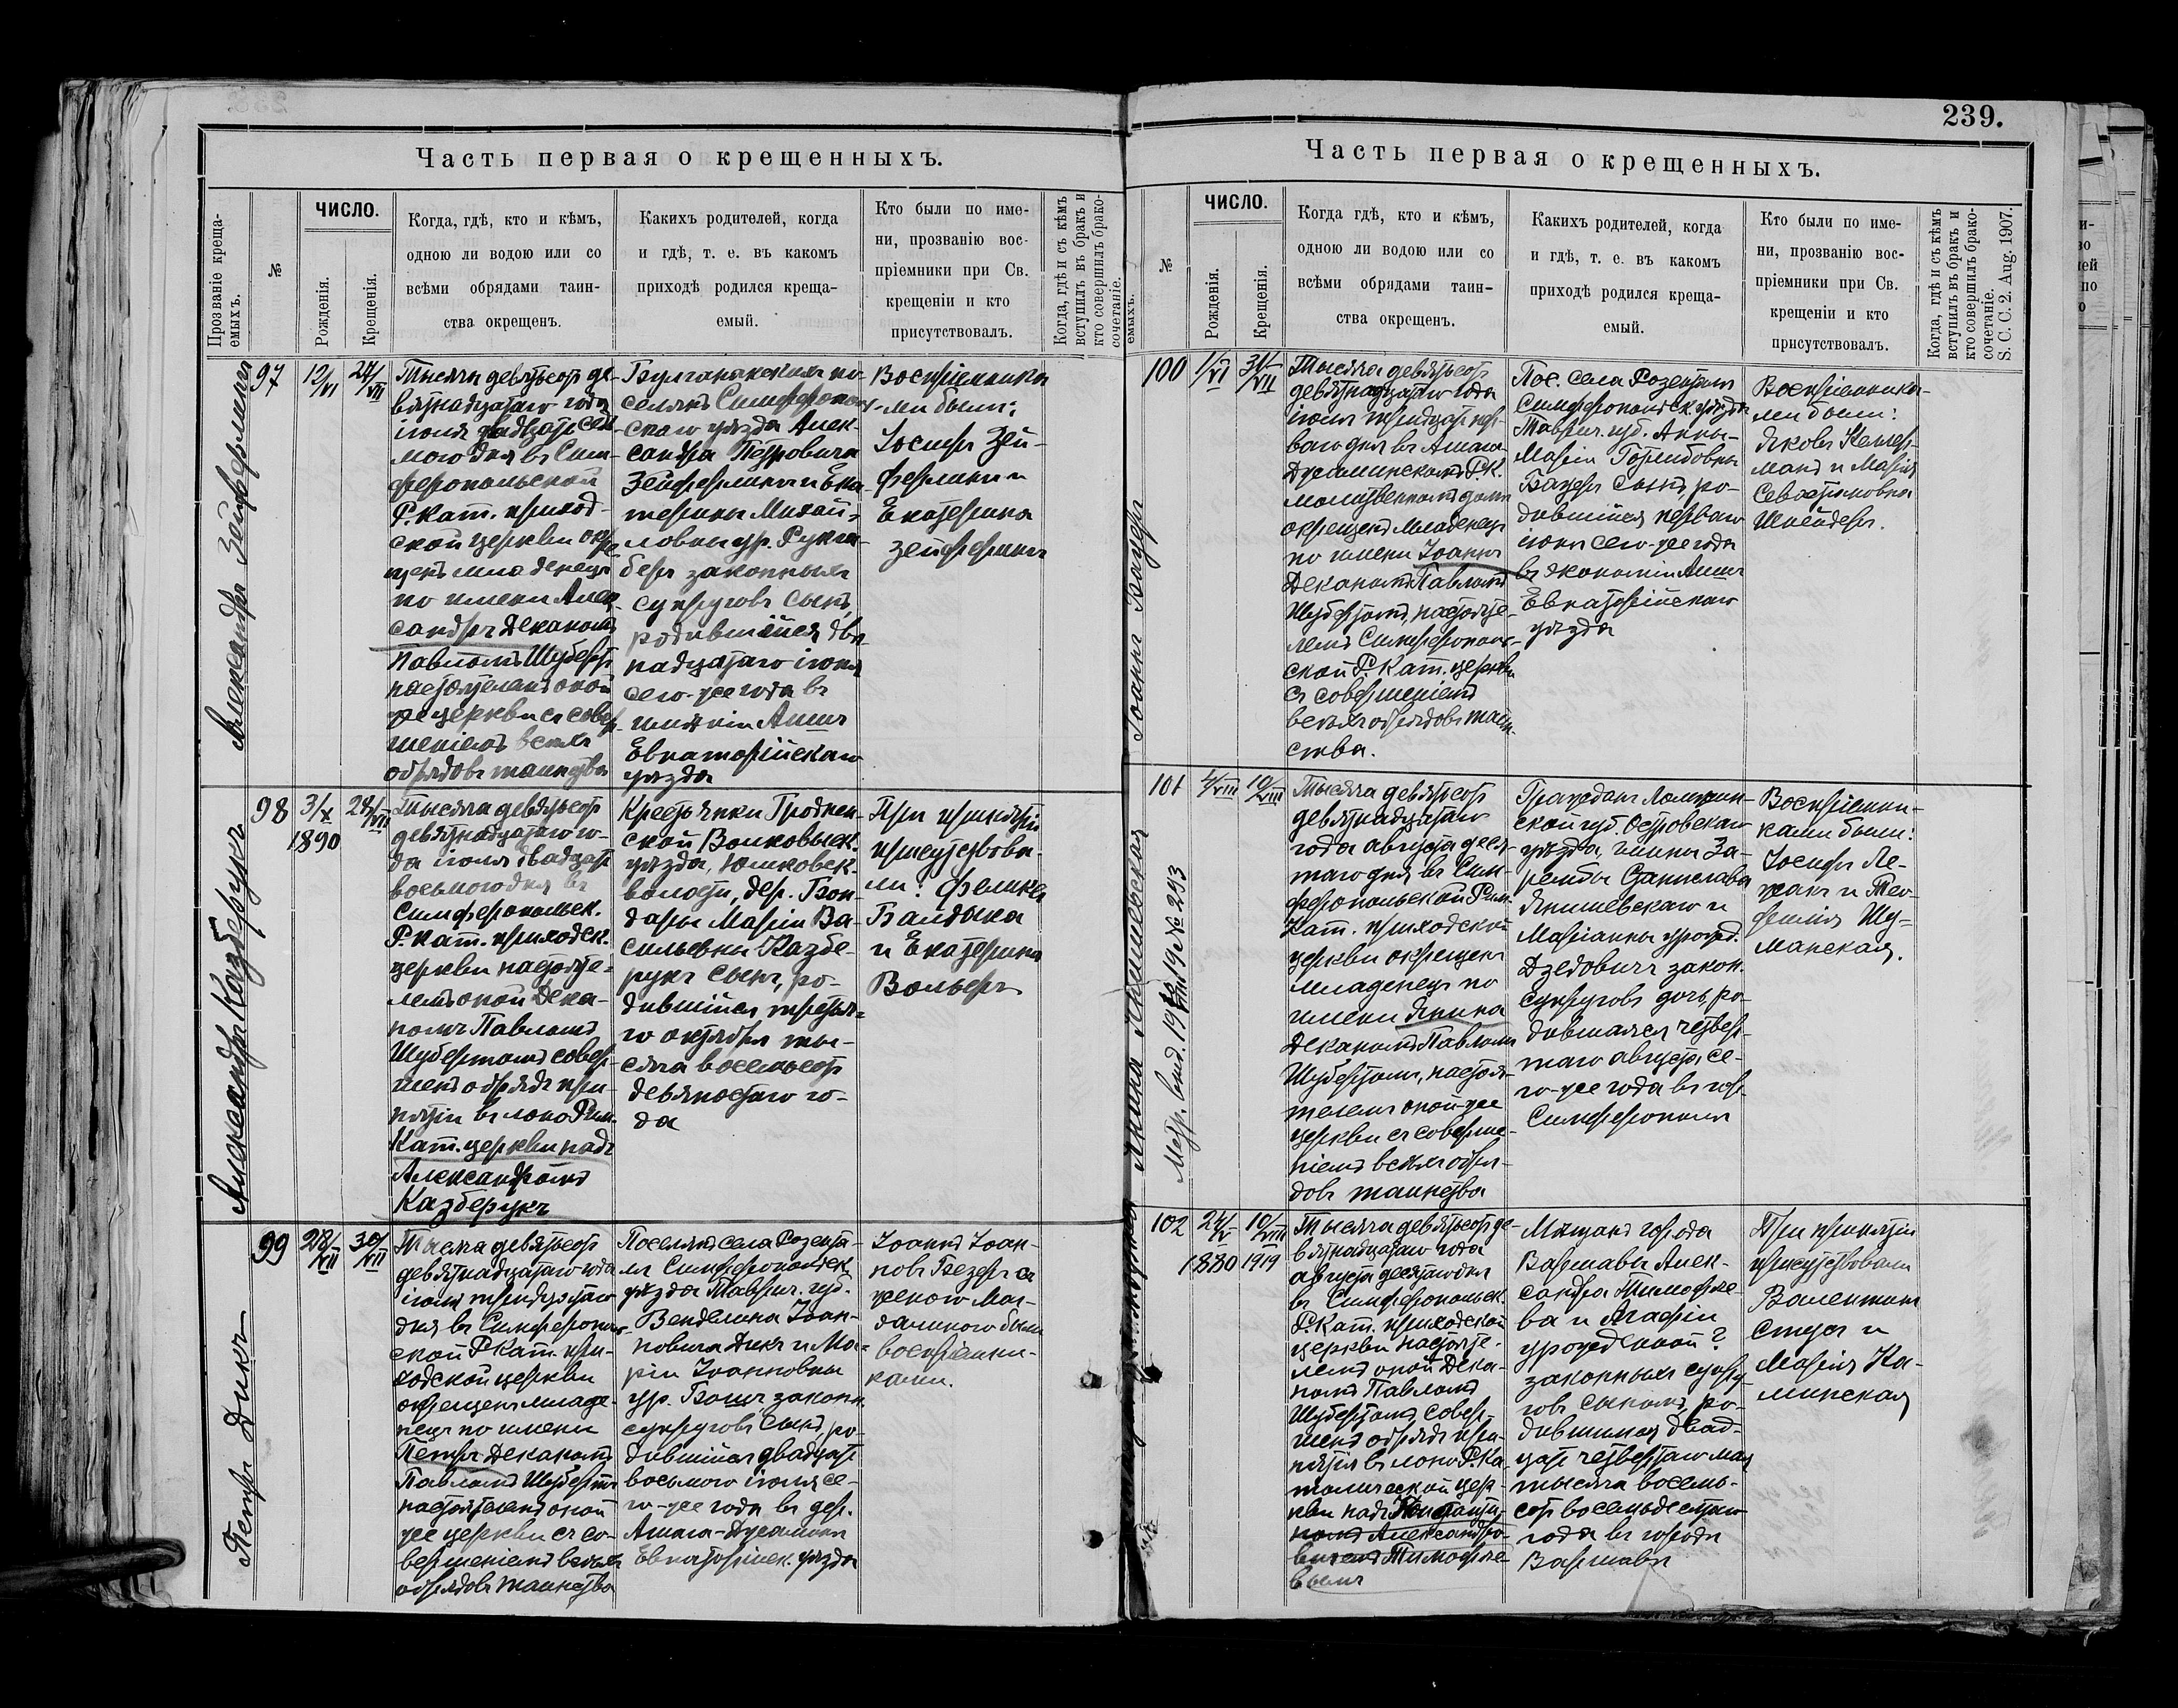 Часть первая о крещенныхъ.
Прозваніе креща-
емыхъ.
№
ЧИСЛО.
Рожденія.
Крещенія.
Когда, гдѣ, кто и кѣмъ,
одною ли водою или со
всѣми обрядами таин-
ства окрещенъ.
Какихъ родителей, когда
и гдѣ, т. е. въ какомъ
приходѣ родился креща-
емый.
Кто были по име-
ни, прозванію вос-
пріемники при Св.
крещеніи и кто
присутствовалъ.
Когда, гдѣ и съ кѣмъ
вступилъ въ бракъ и
кто совершилъ брако-
сочетаніе.
Александръ Зейферлингъ
97
12/VI
27/VII
Тысяча девятьсотъ де-
вятнадцатаго года
іюля двадцать седь-
мого дня въ Сим-
феропольской
Р. Кат. приход-
ской церкви окре-
щенъ младенецъ
по имени Алек-
сандръ Деканомъ
Павломъ Шубертъ
настоятелемъ оной
же церкви съ совер-
шеніемъ всѣхъ
обрядовъ таинства
селянъ Симферополь-
скаго уѣзда Алек-
сандра Петровича
и Ека-
терины Михай-
ловны ур.
законныхъ
супруговъ сынъ,
родившійся двѣ-
надцатаго іюня
сего-же года въ
имѣніи Ашигъ
Евпаторійскаго
уѣзда
Воспріемника-
ми были:
Іосифъ Зей-
ферлингъ и
Екатерина
Александръ Казберукъ
98
3/X
1890
28/VII
Тысяча девятьсотъ
девятнадцатаго го-
да іюля двадцать
восьмого дня въ
Симферопольск.
Р. Кат. приходск.
церкви настояте-
лемъ оной Дека-
номъ Павломъ
Шубертомъ совер-
шенъ обрядъ при-
нятія въ лоно Рим.
Кат. церкви надъ
Александромъ
Казберукъ
Крестьянки Гроднен-
ской Волковыск.
уѣзда, Юшковск.
волости, дер. Бон-
дары Маріи Ва-
сильевны Казбе-
рукъ сынъ, ро-
дившійся третья-
го октября ты-
сяча восемьсотъ
девяностаго го-
да
При принятіи
присутствова-
ли: Феликсъ
Балдыка
и Екатерина
Вольеръ
Петръ Дикъ
99
28/VII
30/VII
Тысяча девятьсотъ
девятнадцатаго года
іюля тридцатаго
дня въ Симферополь-
ской Р. Кат. при-
ходской церкви
окрещенъ младе-
нецъ по имени
Петръ Деканомъ
Павломъ Шубертомъ
настоятелемъ оной
же церкви съ со-
вершеніемъ всѣхъ
обрядовъ таинства
Поселянъ села Розента-
ля Симферопольск.
уѣзда Таврич. губ.
Венделина Іоан-
новича Дикъ и Ма-
ріи Іоанновны
ур. законн.
супруговъ сынъ, ро-
дившійся двадцать
восьмого іюля се-
го-же года въ дер.
Ашага-Джаминъ
Евпаторійск. уѣзда
Іоаннъ Іоан-
новъ Безеръ съ
женою Маг-
даленою были
воспріемни-
ками.
239.
Часть первая о крещенныхъ.
емыхъ.
№
ЧИСЛО.
Рожденія.
Крещенія.
Когда гдѣ, кто и кѣмъ,
одною ли водою или со
всѣми обрядами таин-
ства окрещенъ.
Какихъ родителей, когда
и гдѣ, т. е. въ какомъ
приходѣ родился креща-
емый.
Кто были по име-
ни, прозванію вос-
пріемники при Св.
крещеніи и кто
присутствовалъ.
Когда, гдѣ и съ кѣмъ
вступилъ въ бракъ и
кто совершилъ брако-
сочетаніе.
S. C. C. 2. Aug. 1907.
Іоаннъ Бауеръ
100
1/VI
31/VII
Тысяча девятьсотъ
девятнадцатаго года
іюля тридцать пер-
ваго дня въ Ашага-
Джаминскомъ Р. К.
молитвенномъ домѣ
окрещенъ младенецъ
по имени Іоаннъ
Деканомъ Павломъ
Шубертомъ, настояте-
лемъ Симферополь-
ской Р. Кат. церкви
съ совершеніемъ
всѣхъ обрядовъ таин-
ства.
Пос. села Розенталь
Симферопольск. уѣзда
Таврич. губ. Анны-
Маріи Готлибовны
Бауеръ сынъ, ро-
дившійся перваго
іюня сего-же года
въ экономіи Ашигъ
Евпаторійскаго
уѣзда
Воспріемника-
ми были:
Яковъ Келлер-
манъ и Марія
Севастьяновна
Шнейдеръ.
Янина Янишевская
Метр. выд. 19 № 293
101
4/VIII
10/VIII
Тысяча девятьсотъ
девятнадцатаго
года августа деся-
таго дня въ Сим-
феропольской Рим.
Кат. приходской
церкви окрещенъ
младенецъ по
имени Янина
Деканомъ Павломъ
Шубертомъ, настоя-
телемъ оной-же
церкви съ соверше-
ніемъ всѣхъ обря-
довъ таинства
Гражданъ Ломжин-
ской губ. Островскаго
уѣзда, гмины За-
рембы Станислава
Янишевскаго и
Маріанны урожд.
Дзедовичъ закон.
супруговъ дочь, ро-
дившаяся четвер-
таго августа се-
го-же года въ гор.
Симферополѣ
Воспріемни-
ками были:
Іосифъ Ле-
жакъ и Тео-
филія Шу-
манская.
102
24/V
1880
10/VIII
1919
Тысяча девятьсотъ де-
вятнадцатаго года
августа десятаго дня
въ Симферопольск.
Р. Кат. приходской
церкви настояте-
лемъ оной Дека-
номъ Павломъ
Шубертомъ, совер-
шенъ обрядъ при-
нятія въ лоно Р. Ка-
толической цер-
кви надъ Константи-
номъ Александро-
вичемъ Тимофее-
вымъ
Мѣщанъ города
Варшавы Алек-
сандра Тимофее-
ва и Агафіи
урожденной ?
законныхъ супру-
говъ сыномъ, ро-
дившимся двад-
цать четвертаго мая
тысяча восемь-
сотъ восемьдесятаго
года въ городѣ
Варшавѣ
При принятіи
присутствовали
Валентинъ
и
Марія Ка-
минская